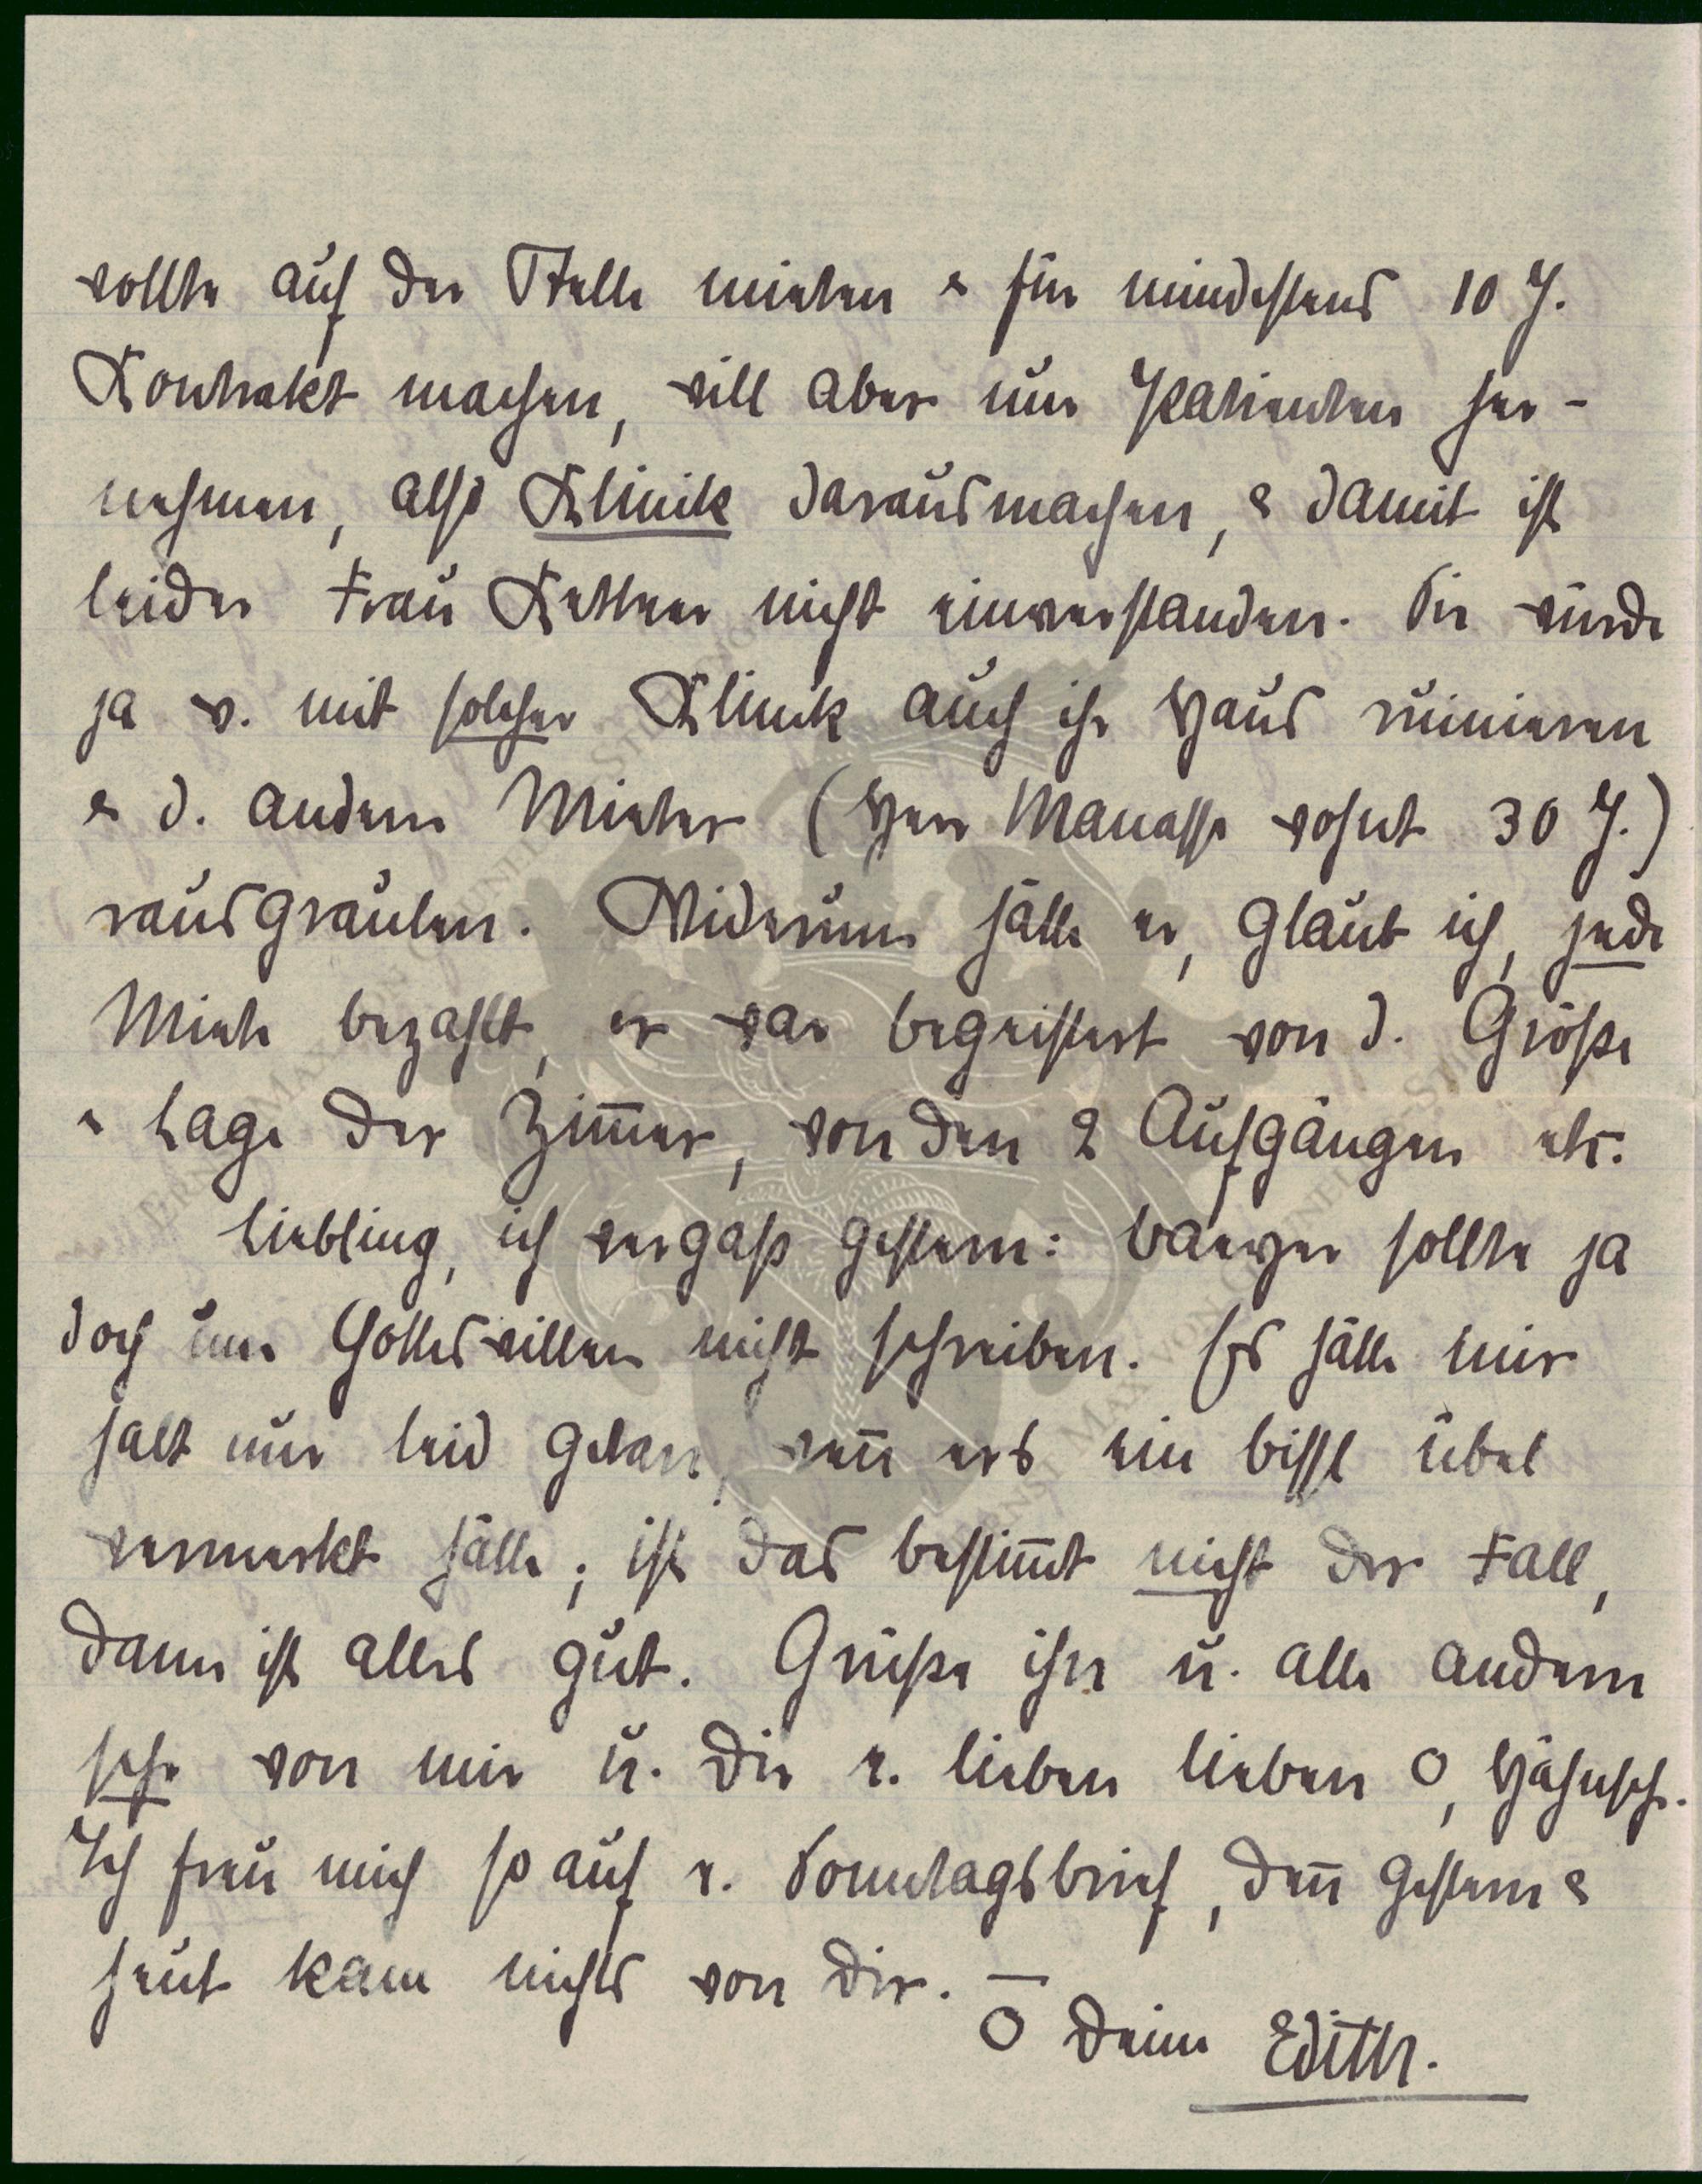 wollte auf der Stelle mieten & für mindestens 10 J.
Kontrakt machen, will aber nur Patienten her-
nehmen, also Klinik darausmachen, & damit ist
leider Frau Kettner nicht einverstanden. Sie würde
ja v. mit solcher Klinik auch ihr Haus ruinieren
& d. andern Mieter (Herr Manasse wohnt 30 J.)
rausgraulen. Widerum hätte er, glaub ich, jede
Miete bezahlt, er war begeistert von d. Größe
& Lage der Zim̅er, von den 2 Aufgängen etc.
Liebling, ich vergaß gestern: Baeyer sollte ja
doch um Gotteswillen nicht schreiben. Es hätte mir
halt nur leid getan, wen̅ ers ein bissl übel
vermerkt hätte; ist das bestim̅t nicht der Fall,
dann ist alles gut. Grüße ihn u. alle andern
sehr von mir u. Dir e. lieben lieben O, Hähnsch.
Ich freu mich so auf e. Sonntagsbrief, den̅ gestern &
heut kam nichts von Dir. —
O Deine Edith.